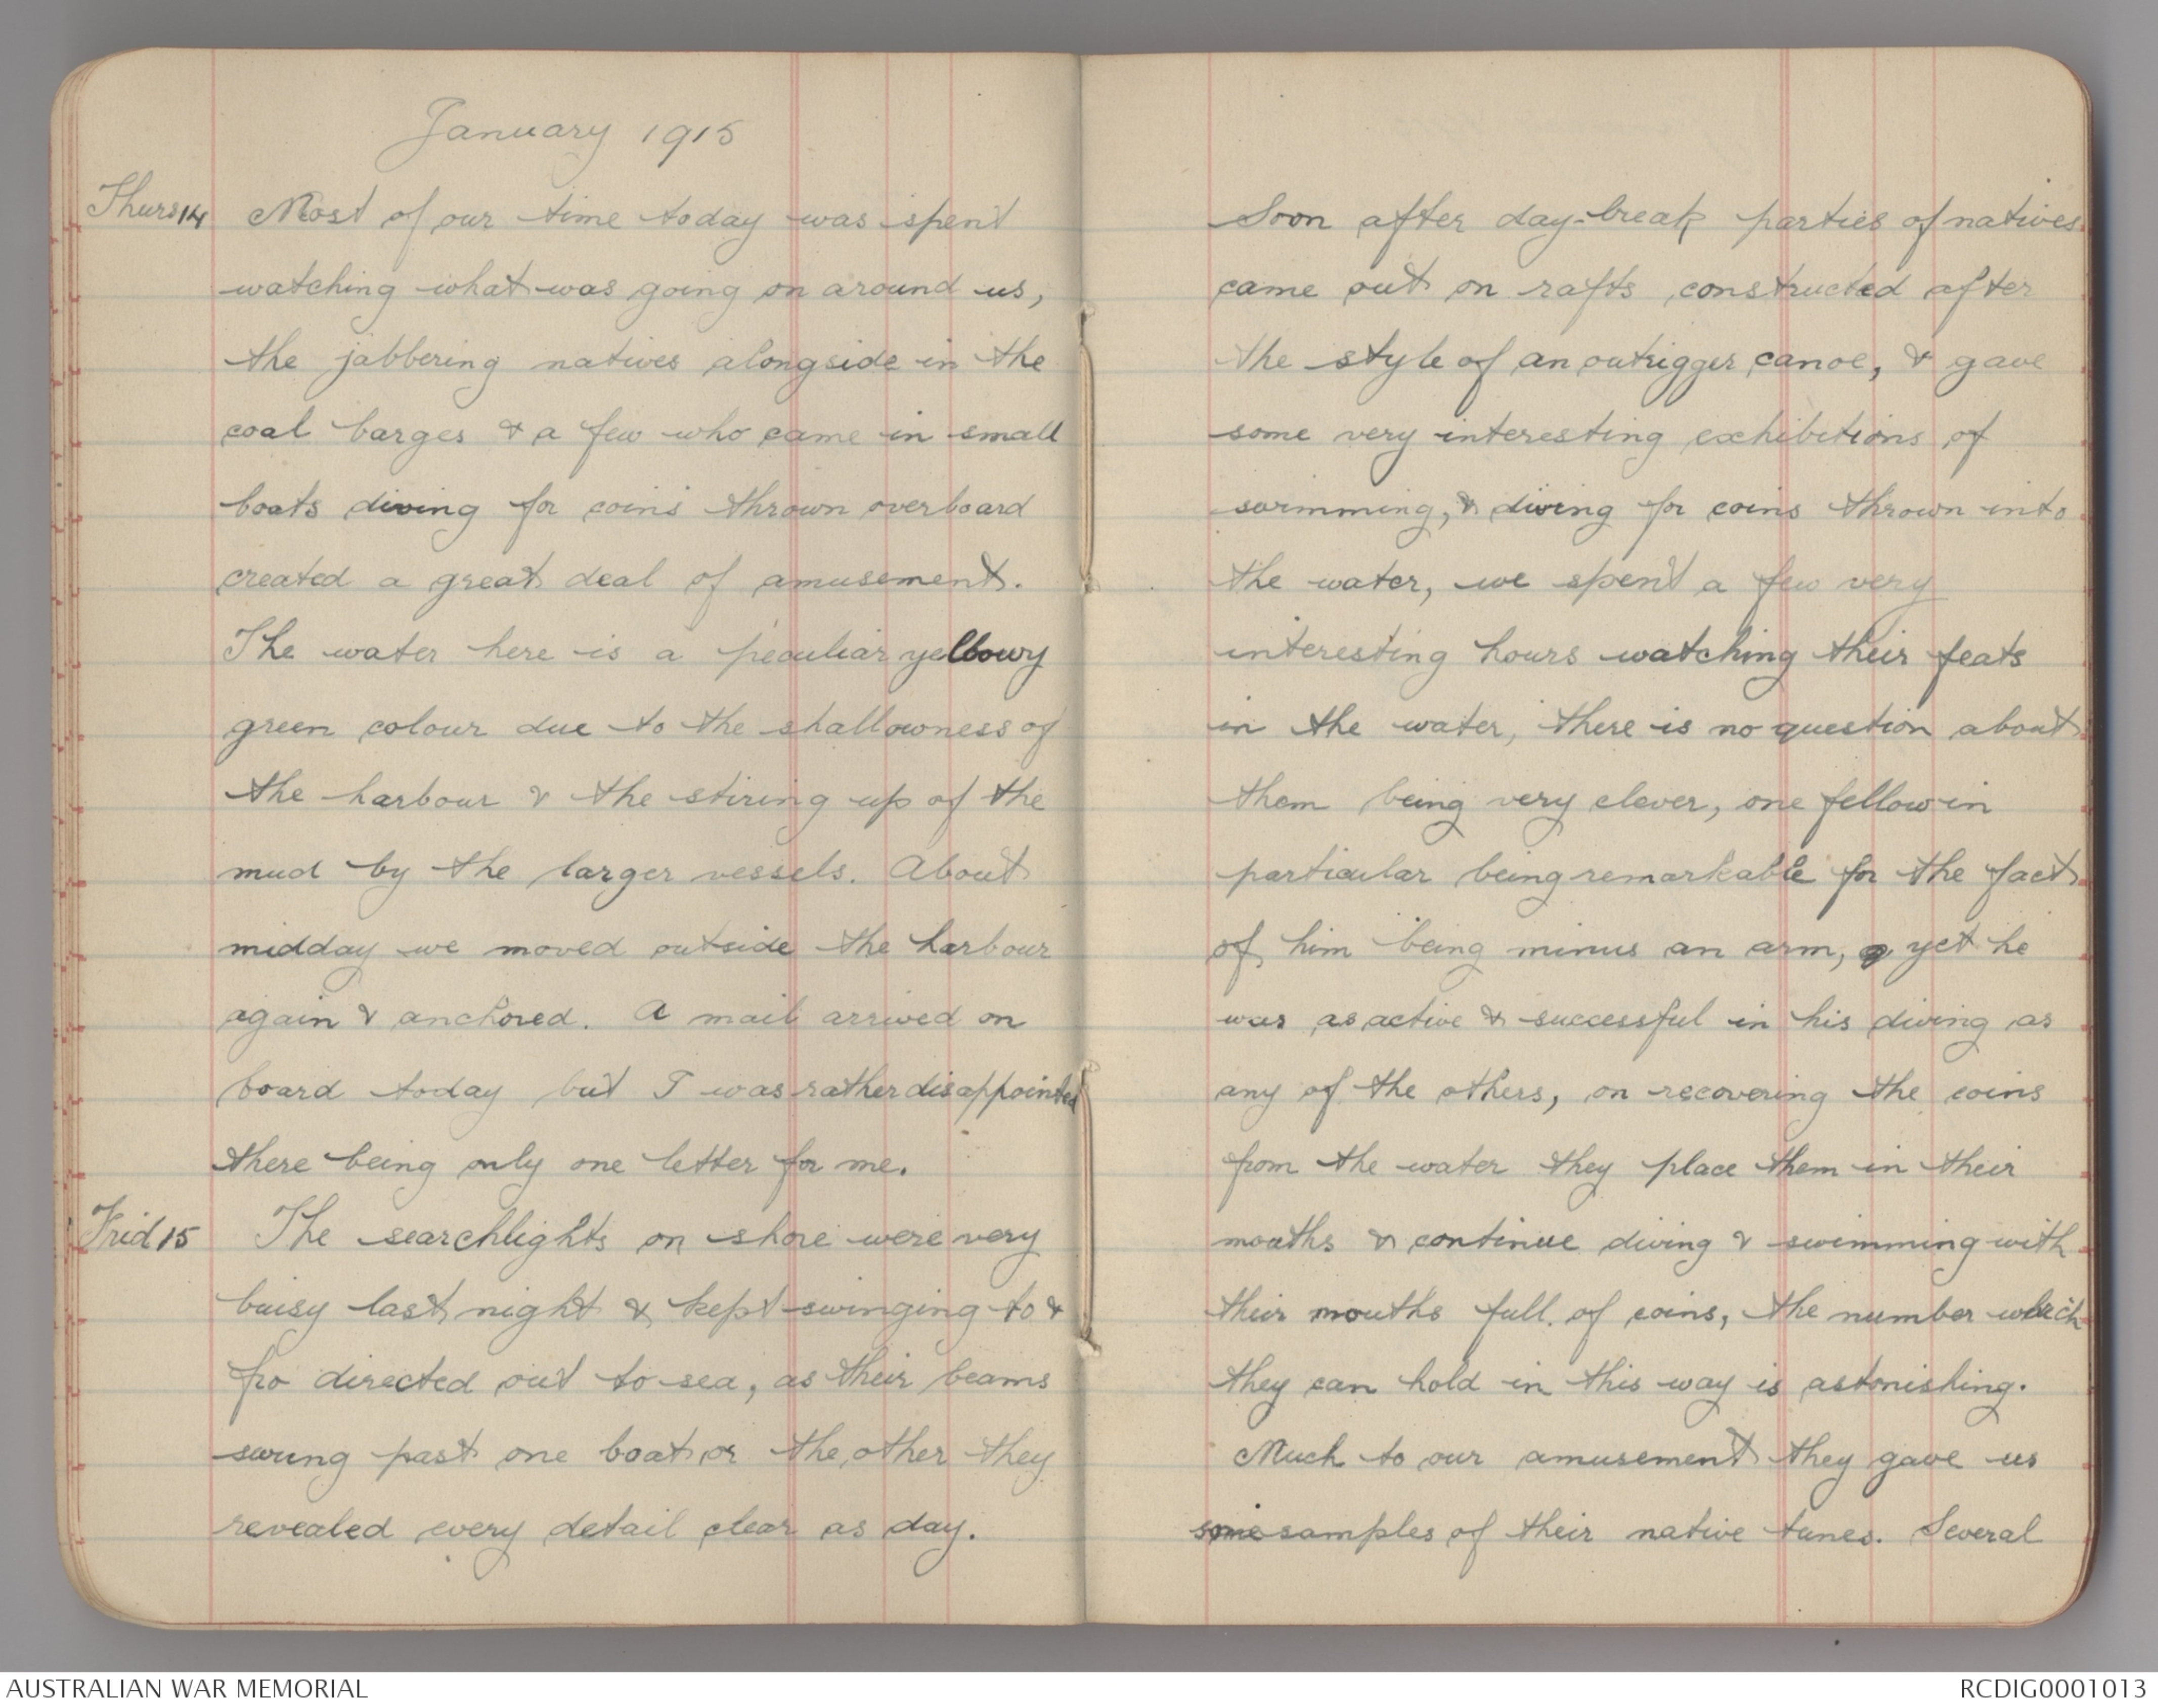 January 1915
Thurs 14 Most of our time today was spent
watching what was going on around us,
the jabbering natives alongside in the
coal barges & a few who came in small
boats diving for coins thrown overboard
created a great deal of amusement.
The water here is a peculiar yellowy
green colour due to the shallowness of
the harbour & the stiring up of the
mud by the larger vessels. About
midday we moved outside the harbour
again & anchored. A mail arrived on
board today but I was rather disappointed
there being only one letter for me.
Frid 15 The searchlights on shore were very
buisy last night & kept swinging to &
fro directed out to sea, as their beams
swung past one boat or the other they
revealed every detail clear as day.
Soon after day-break parties of natives
came out on rafts constructed after
the style of an outrigger canoe, & gave
some very interesting exhibitions of
swimming, & diving for coins thrown into
the water, we spent a few very
interesting hours watching their feats
in the water, there is no question about
them being very clever, one fellow in
particular being remarkable for the fact
of him being minus an arm, yet he
was as active & successful in his diving as
any of the others, on recovering the coins
from the water they place them in their
mouths & continue diving & swimming with
their mouths full of coins, the number which
they can hold in this way is astonishing.
Much to our amusement they gave us
some samples of their native tunes. Several
AUSTRALIAN WAR MEMORIAL
RCDIG0001013